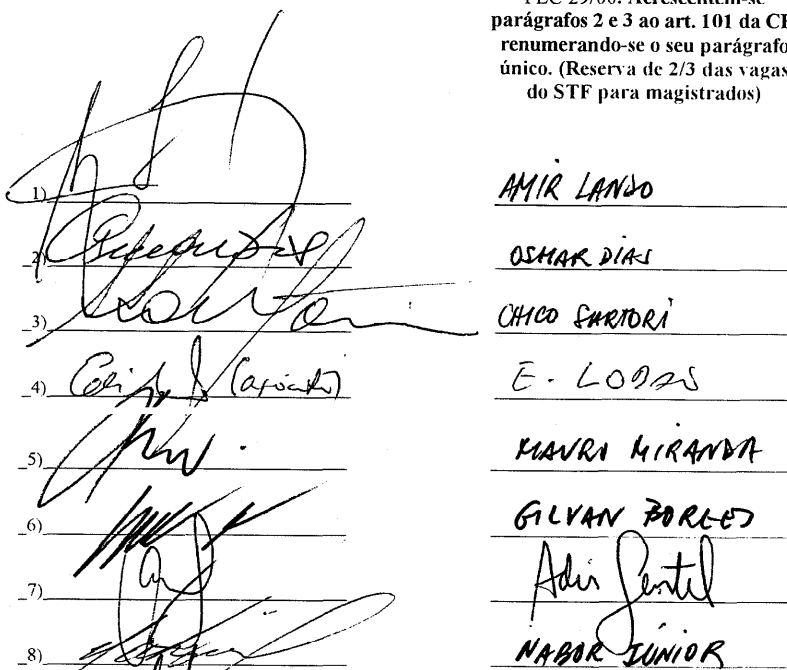 PEC 29/00. Acrescentem-se
parágrafos 2 e 3 ao art. 101 da CF
renumerando-se o seu parágrafo
único. (Reserva de 2/3 das vagas
do STF para magistrados)
1) AMIR LANDO
2) OSMAR DIAS
3) CHICO SARTORI
4) (apoiamento) E. LOBÃO
5) MAURO MIRANDA
6) GILVAN BORGES
7) Adir Gentil
8) NABOR JÚNIOR